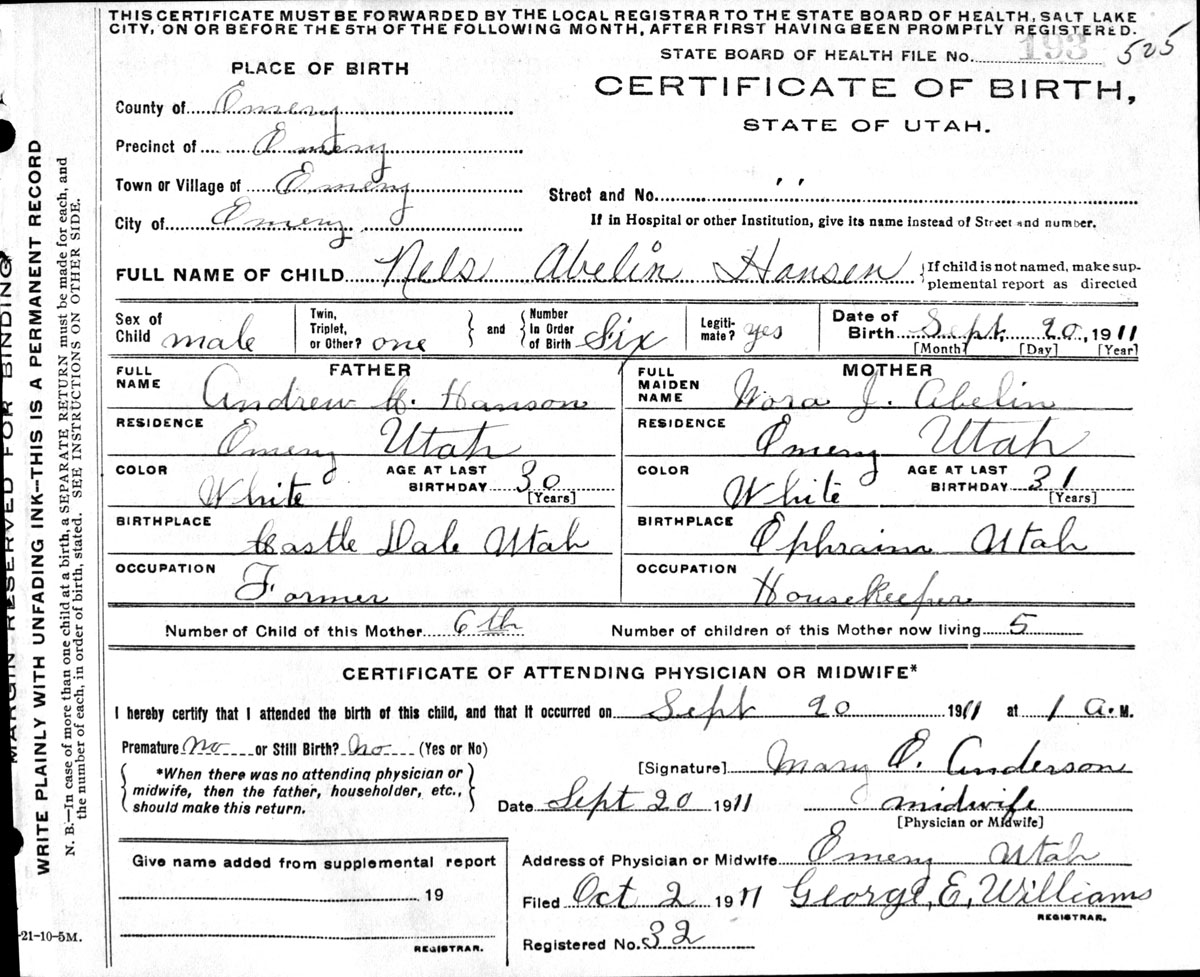 THIS CERTIFICATE MUST BE FORWARDED BY THE LOCAL REGISTRAR TO THE STATE BOARD OF HEALTH, SALT LAKE
CITY, ON OR BEFORE THE 5TH OF THE FOLLOWING MONTH, AFTER FIRST HAVING BEEN PROMPTLY REGISTERED.
STATE BOARD OF HEALTH FILE No. 193 525
PLACE OF BIRTH
CERTIFICATE OF BIRTH,
STATE OF UTAH.
County of Emery
Precinct of Emery
Town or Village of Emery
Street and No. ,,
City of Emery
If in Hospital or other Institution, give its name instead of Street and number.
FULL NAME OF CHILD Nels Abelin Hansen
If child is not named, make sup-
plemental report as directed
Sex of Child male
Twin, Triplet, or Other? one
and
Number in Order of Birth Six
Legiti-mate? yes
Date of Birth Sept. 20, 1911
[Month] [Day] [Year]
FATHER
FULL NAME Andrew H. Hanson
RESIDENCE Emery Utah
COLOR White
AGE AT LAST BIRTHDAY 30
[Years]
BIRTHPLACE Castle Dale Utah
OCCUPATION Farmer
MOTHER
FULL MAIDEN NAME Nora J. Abelin
RESIDENCE Emery Utah
COLOR White
AGE AT LAST BIRTHDAY 31
[Years]
BIRTHPLACE Ephraim Utah
OCCUPATION Housekeeper
Number of Child of this Mother 6th
Number of children of this Mother now living 5
CERTIFICATE OF ATTENDING PHYSICIAN OR MIDWIFE*
I hereby certify that I attended the birth of this child, and that it occurred on Sept 20 1911 at 1 a. M.
Premature no or Still Birth? no (Yes or No)
*When there was no attending physician or
midwife, then the father, householder, etc.,
should make this return.
[Signature] Mary E. Anderson
Date Sept 20 1911
midwife
[Physician or Midwife]
Give name added from supplemental report
19
REGISTRAR.
Address of Physician or Midwife Emery Utah
Filed Oct 2 1911 George, E, Williams
REGISTRAR.
Registered No. 32
MARGIN RESERVED FOR BINDING
WRITE PLAINLY WITH UNFADING INK—THIS IS A PERMANENT RECORD
N. B.—In case of more than one child at a birth, a SEPARATE RETURN must be made for each, and
the number of each, in order of birth, stated. SEE INSTRUCTIONS ON OTHER SIDE.
-21-10-5M.